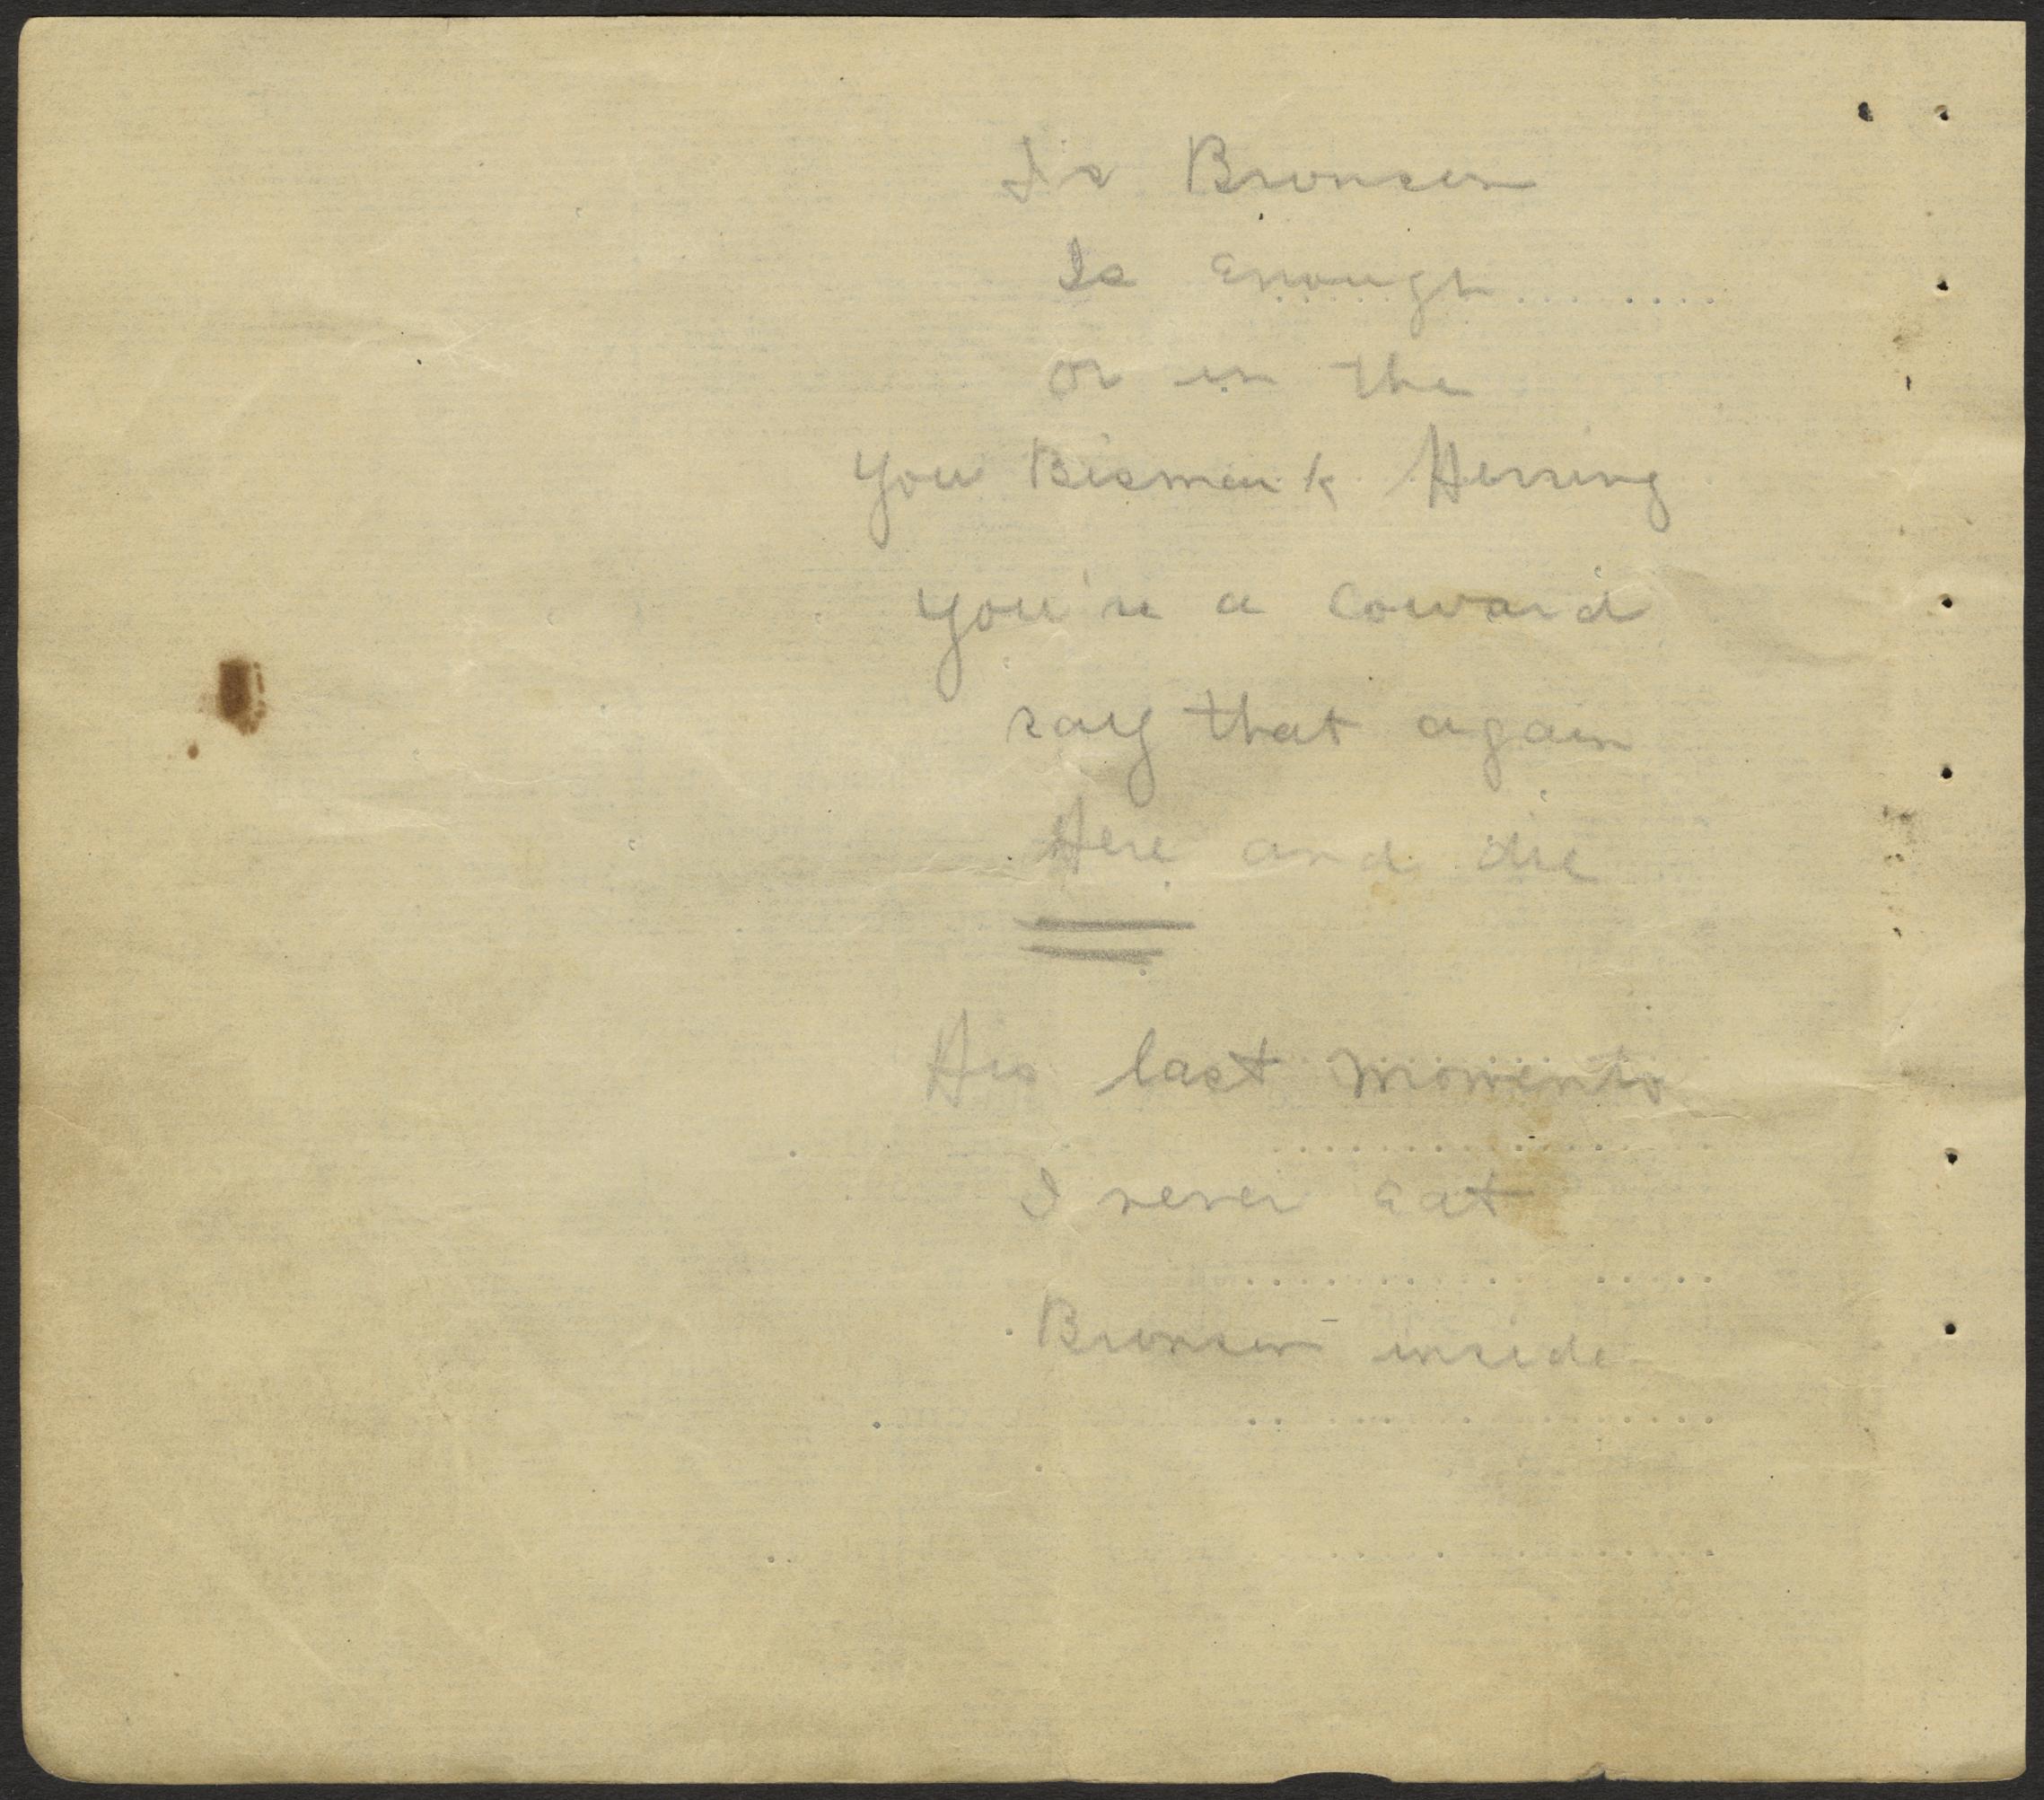 Is Bronson
Is Enough
or in the
you Bismark Herring
you're a coward
say that again
Here and die
His last moments
I never eat
Bronson inside